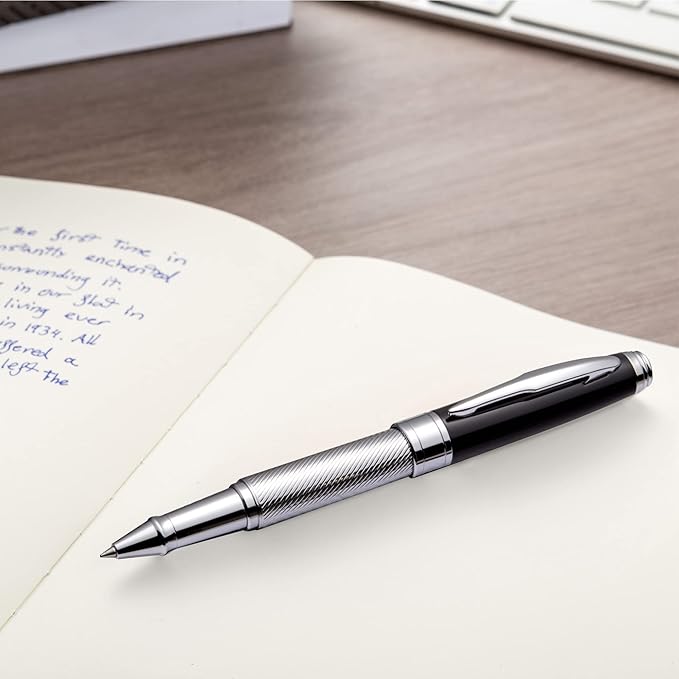 the first time in
nstantly enchanted
surrounding it.
in our flat in
living ever
in 1934. All
ffered a
left the